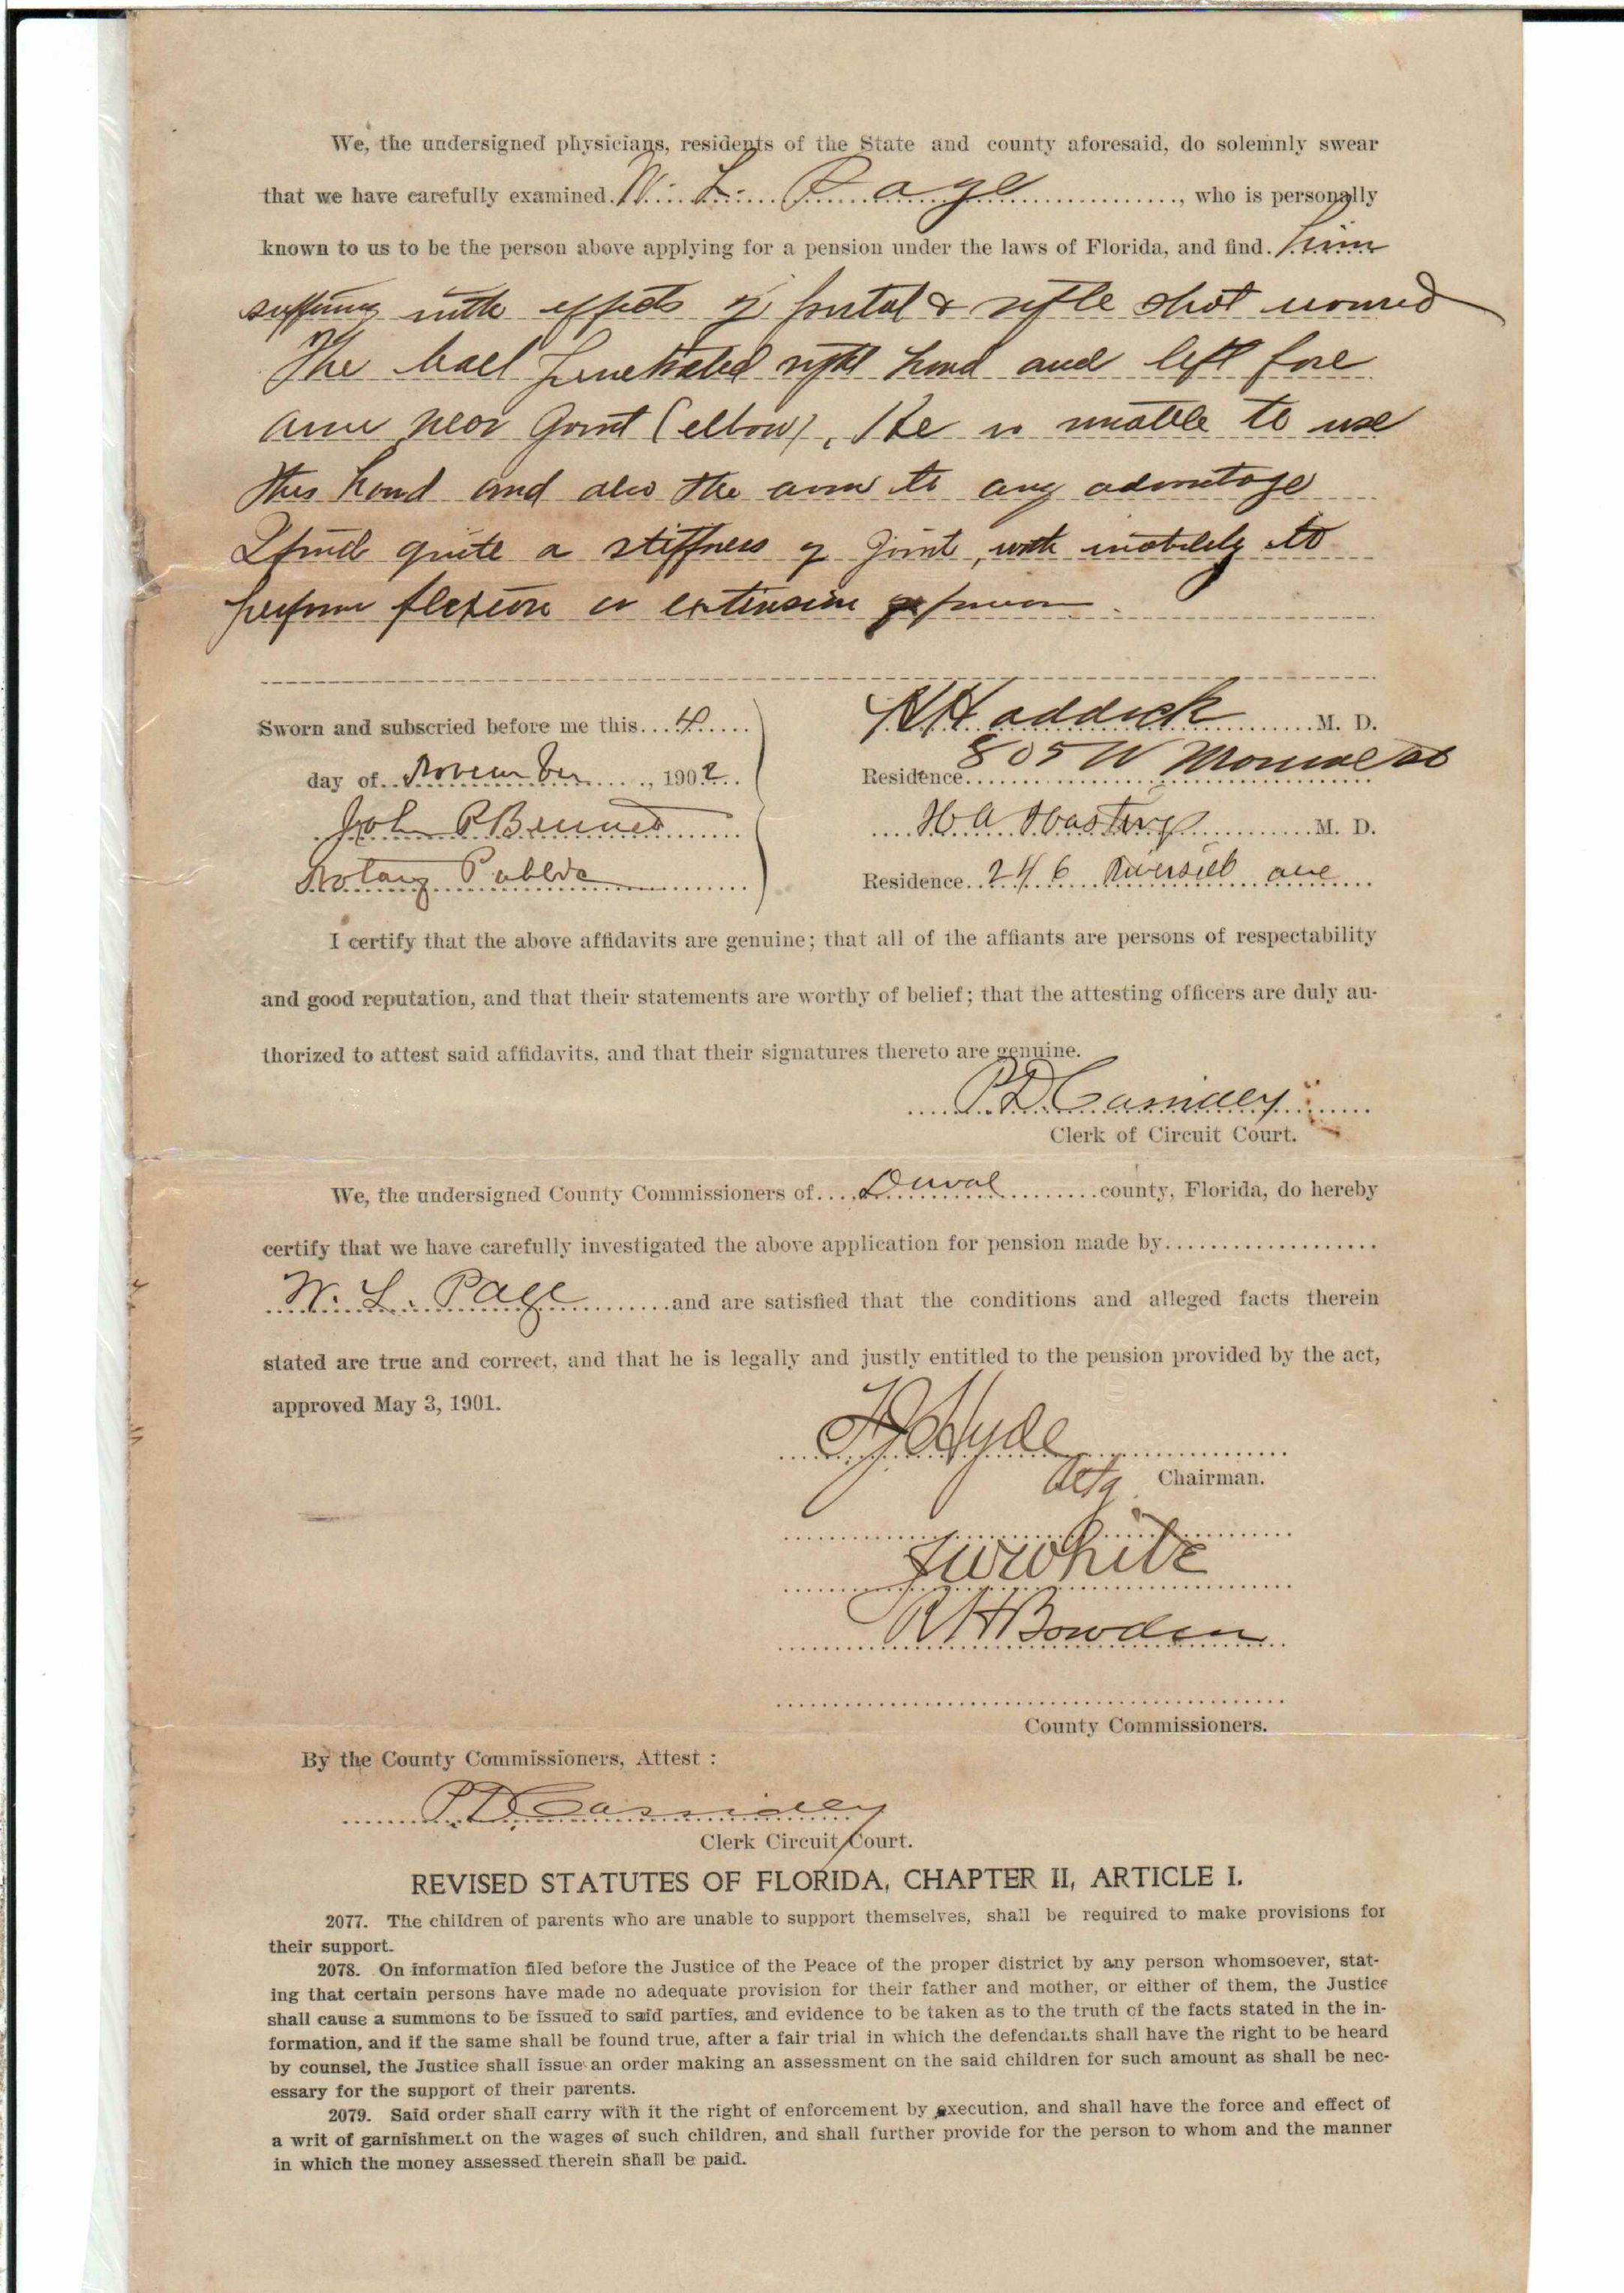 We, the undersigned physicians, residents of the State and county aforesaid, do solemnly swear
that we have carefully examined W. L. Page, who is personally
known to us to be the person above applying for a pension under the laws of Florida, and find him
suffering with effects of pistol & rifle shot wound
The ball penetrated right hand and left fore
arm near joint (elbow). He is unable to use
this hand and also the arm to any advantage
I find quite a stiffness of joint, with inability to
perform flexion or extension
Sworn and subscried before me this 4
day of November, 1902
John P Bennet
Notary Public
R H Haddock M. D.
Residence 805 W Monroe st
H A Hastings M. D.
Residence 246 Riverside ave
I certify that the above affidavits are genuine; that all of the affiants are persons of respectability
and good reputation, and that their statements are worthy of belief; that the attesting officers are duly au-
thorized to attest said affidavits, and that their signatures thereto are genuine.
P D Cassidey
Clerk of Circuit Court.
We, the undersigned County Commissioners of Duval county, Florida, do hereby
certify that we have carefully investigated the above application for pension made by
W. L. Page and are satisfied that the conditions and alleged facts therein
stated are true and correct, and that he is legally and justly entitled to the pension provided by the act,
approved May 3, 1901.
Hyde
Actg Chairman.
J W White
R H Bowden
County Commissioners.
By the County Commissioners, Attest :
P D Cassidey
Clerk Circuit Court.
REVISED STATUTES OF FLORIDA, CHAPTER II, ARTICLE I.
2077. The children of parents who are unable to support themselves, shall be required to make provisions for
their support.
2078. On information filed before the Justice of the Peace of the proper district by any person whomsoever, stat-
ing that certain persons have made no adequate provision for their father and mother, or either of them, the Justice
shall cause a summons to be issued to said parties, and evidence to be taken as to the truth of the facts stated in the in-
formation, and if the same shall be found true, after a fair trial in which the defendants shall have the right to be heard
by counsel, the Justice shall issue an order making an assessment on the said children for such amount as shall be nec-
essary for the support of their parents.
2079. Said order shall carry with it the right of enforcement by execution, and shall have the force and effect of
a writ of garnishment on the wages of such children, and shall further provide for the person to whom and the manner
in which the money assessed therein shall be paid.